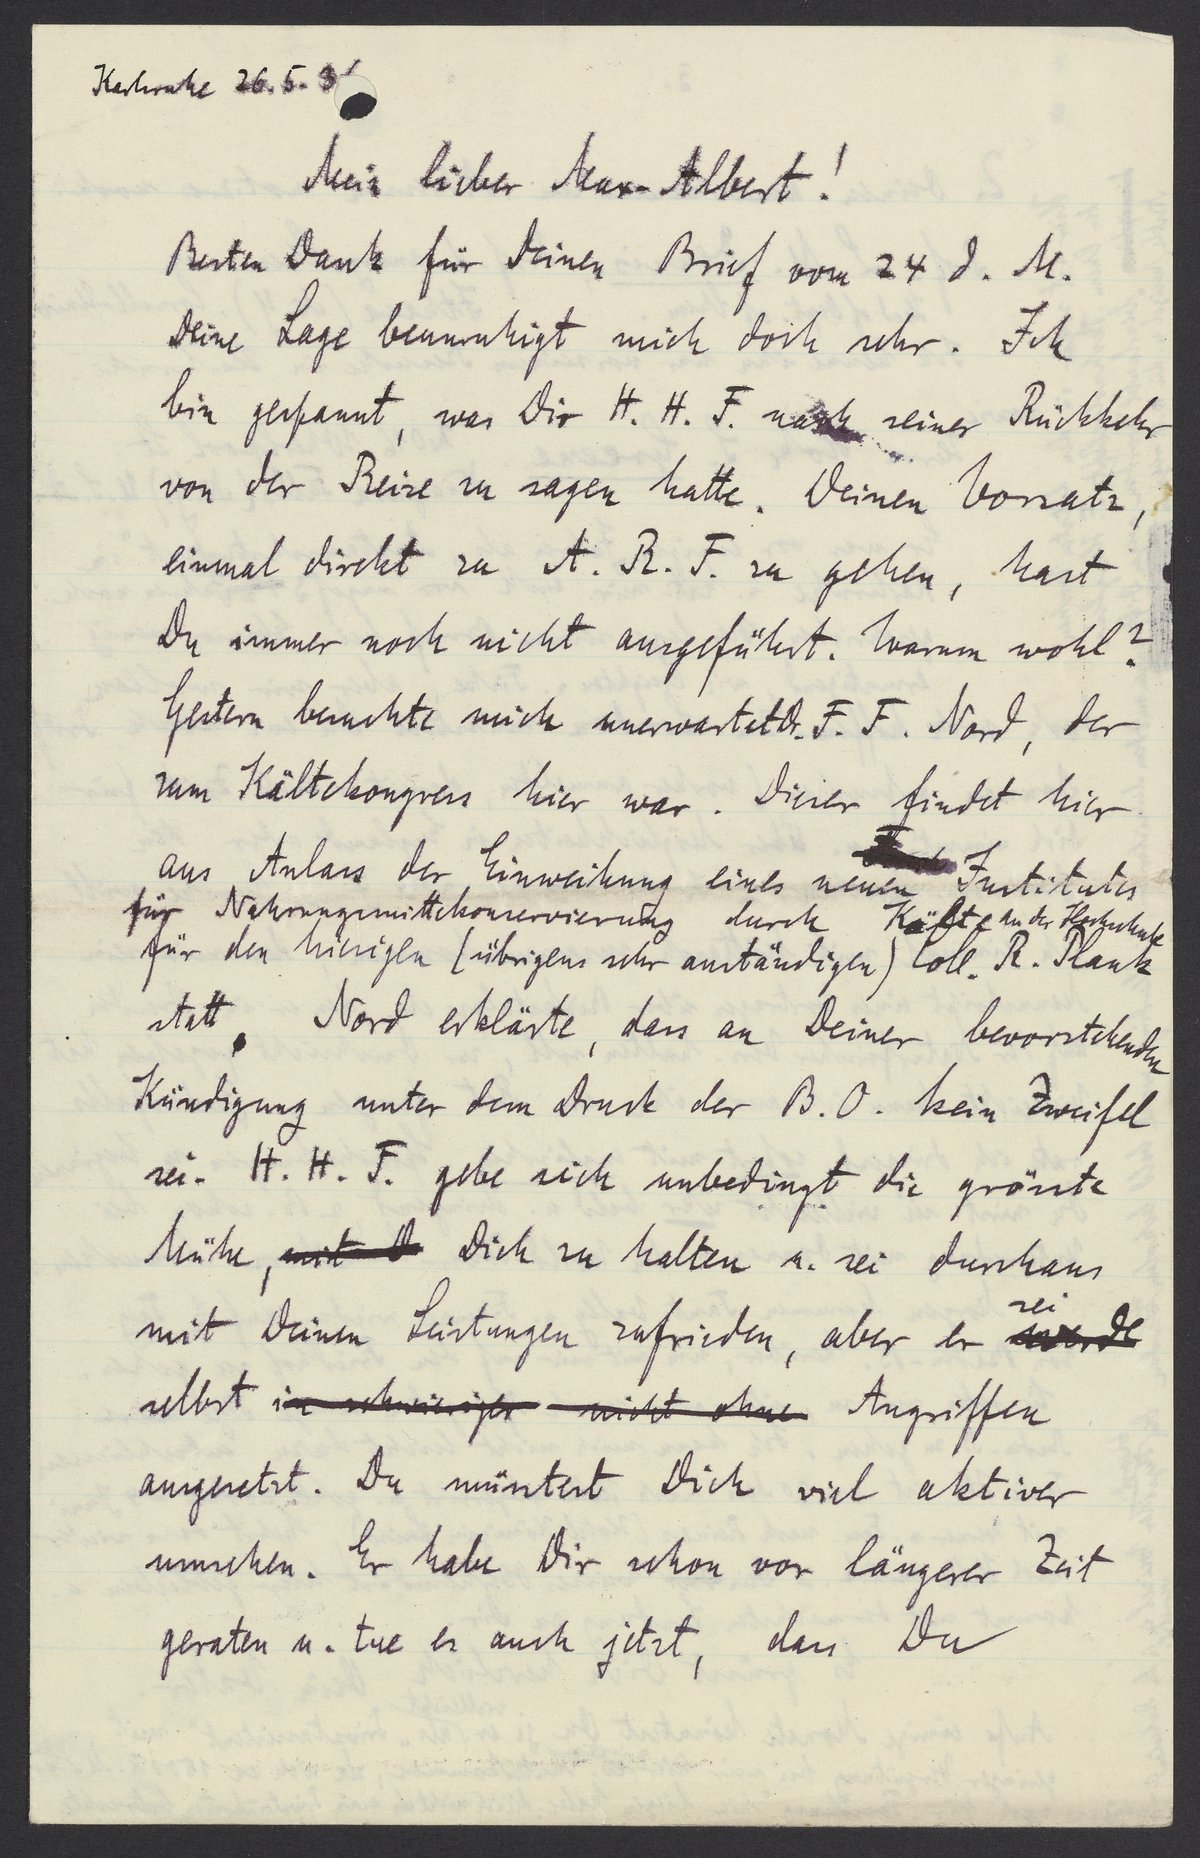 Karlsruhe 26.5.3
Mein lieber Max-Albert!
Besten Dank für Deinen Brief vom 24 d. M.
Deine Lage beunruhigt mich doch sehr. Ich
bin gespannt, was Dir H. H. F. nach seiner Rückkehr
von der Reise zu sagen hatte. Deinen Vorsatz,
einmal direkt zu A. R. F. zu gehen, hast
Du immer noch nicht ausgeführt. Warum wohl?
Gestern besuchte mich unerwartet Dr. F. F. Nord, der
zum Kältekongress hier war. Dieser findet hier
aus Anlass der Einweihung eines neuen Institutes
für Nahrungsmittelkonservierung durch Kälte an der Hochschule
für den hiesigen (übrigens sehr anständigen) Coll. R. Plank
statt. Nord erklärte, dass an Deiner bevorstehenden
Kündigung unter dem Druck der B. O. kein Zweifel
sei. H. H. F. gebe sich unbedingt die grösste
Mühe, mit D Dich zu halten u. sei durchaus
mit Deinen Leistungen zufrieden, aber er werde sei
selbst in schwieriger nicht ohne Angriffen
ausgesetzt. Du müsstest Dich viel aktiver
umsehen. Er habe Dir schon vor längerer Zeit
geraten u. tue es auch jetzt, dass Du